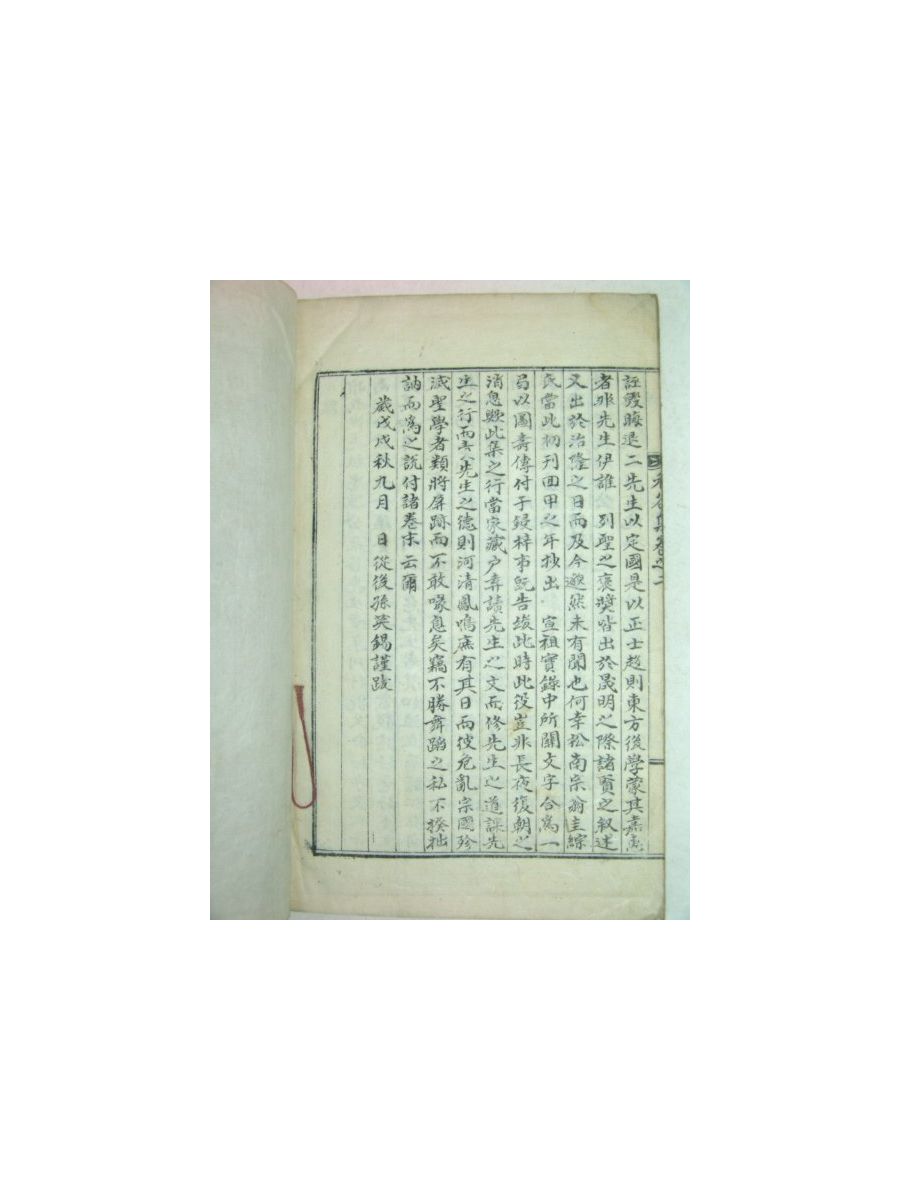 誣毀晦退 二先生以定國是以正士趍則東方後學蒙其嘉惠
者非先生伊誰 列聖之褒奬皆出於晟明之際諸賢之叙述
又出於治隆之日而及今邈然未有聞也何幸松南宗翁圭綜
氏當此初刊回甲之年抄出 宣祖實錄中所關文字合爲一
局以圖壽傳付于鋟梓事旣告竣此時此役豈非長夜復朝之
消息歟此集之行當家藏户弆讀先生之文而修先生之道課先
生之行而 先生之德則河清鳳鳴庶有其日而彼危亂宗國殄
滅聖學者類將屛跡而不敢喙息矣竊不勝舞蹈之私不揆拙
訥而爲之說付諸卷末云爾
歲戊戌秋九月 日從後孫英錫謹跋
集卷之二